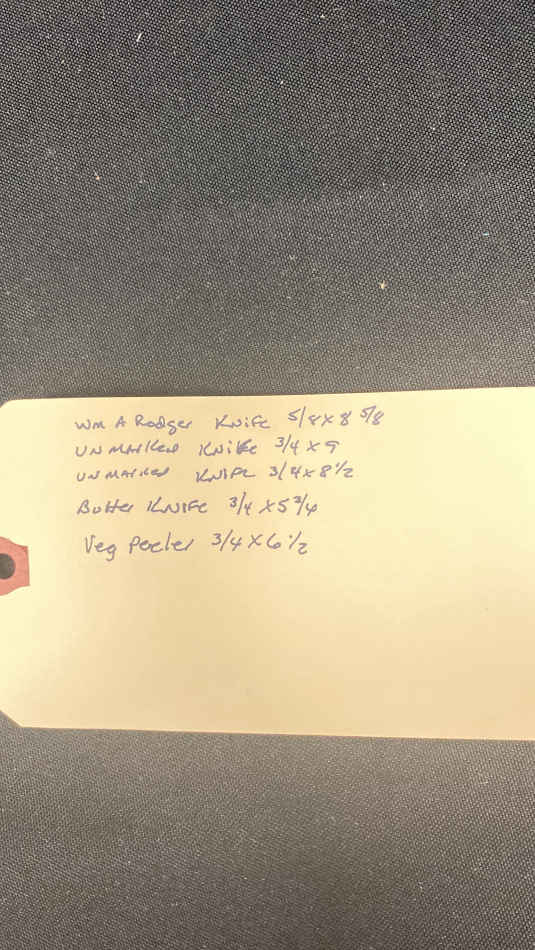 Wm A Rodger Knife 5/8 x 8 5/8
UNMARKED KNIFE 3/4 x 9
UNMARKED KNIFE 3/4 x 8 1/2
Butter KNIFE 3/4 x 5 3/4
Veg Peeler 3/4 x 6 1/2